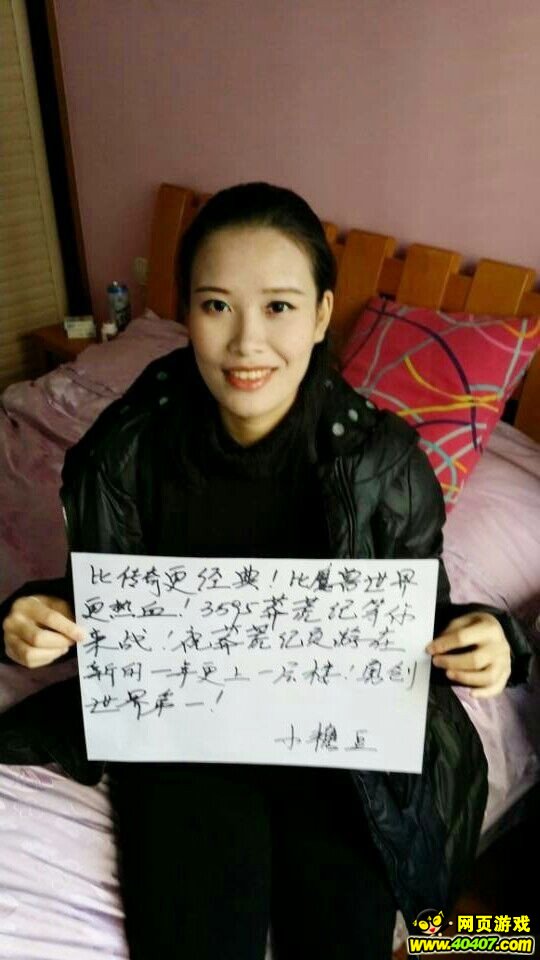 比传奇更经典！比魔兽世界
更热血！3595莽荒纪等你
来战！祝莽荒纪页游在
新的一年更上一层楼！勇创
世界第一！
小糖豆
网页游戏
www.40407.com